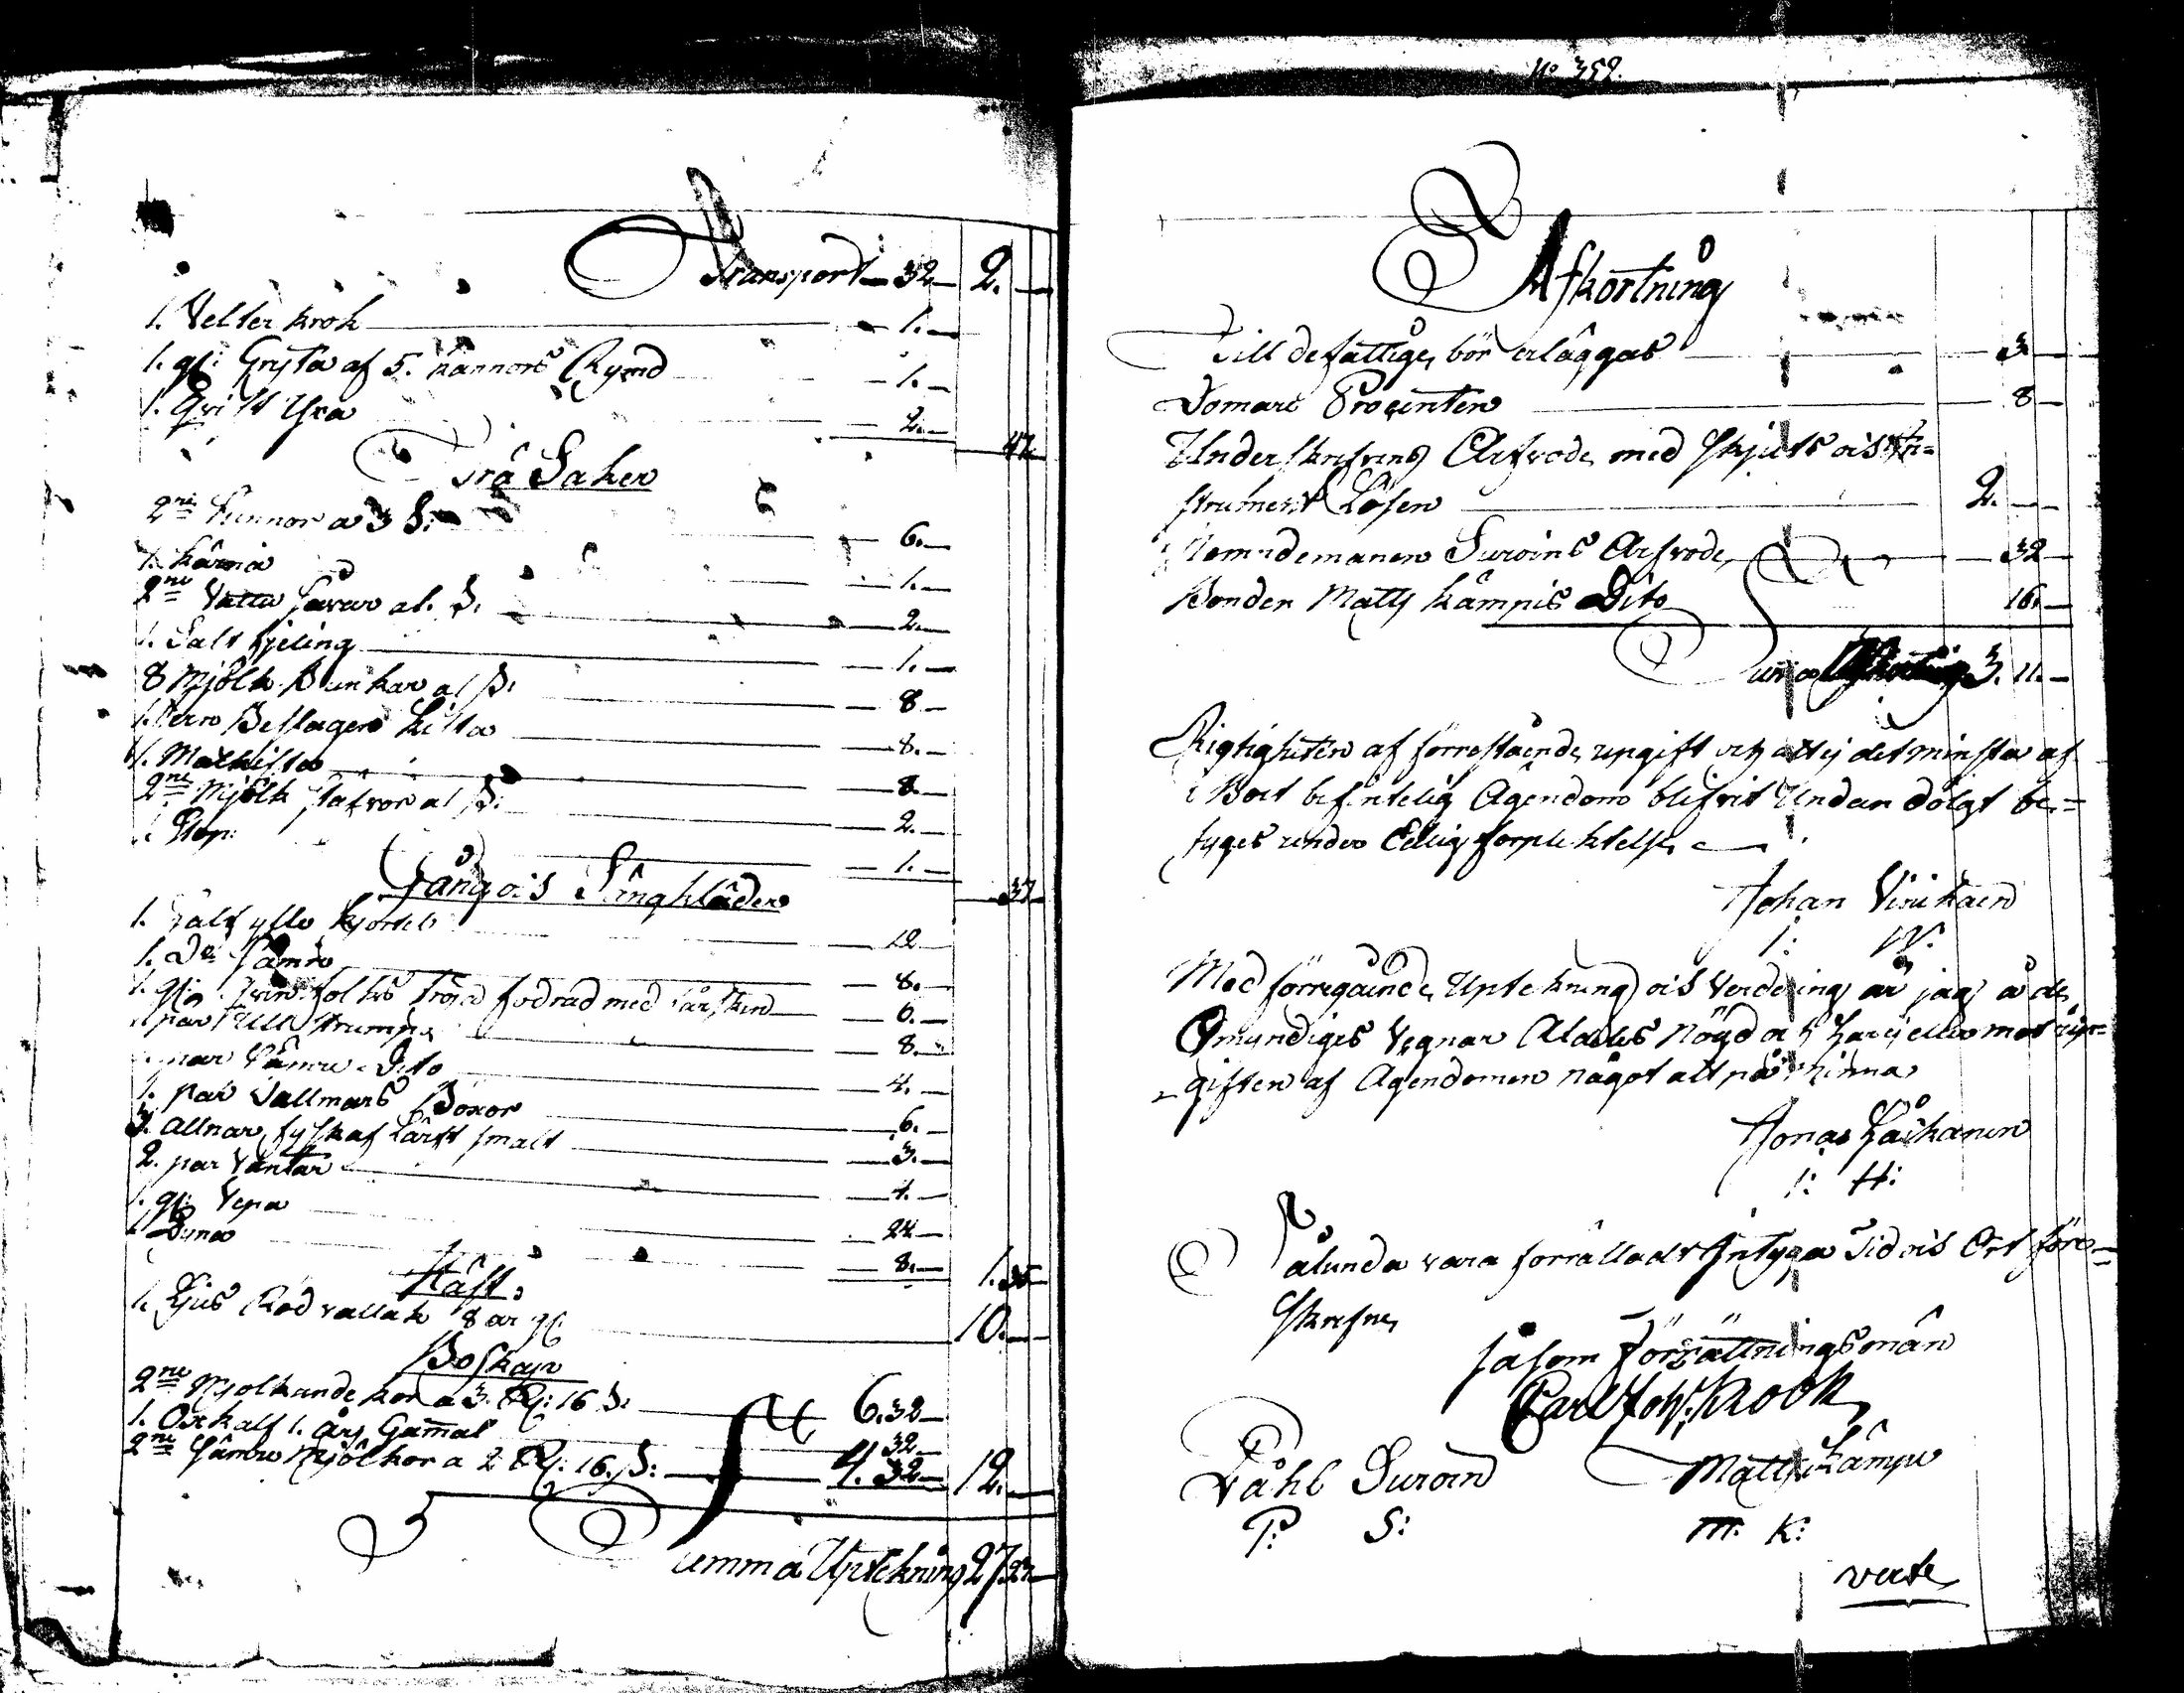 Transport 32 2.
1. Velter krok 1.
1. gl: Gryta af 5. kannors Rymd 1.
1. Yxa 2.
Trä Saker
2ne Tunnor a 3 S: 6.
1. Kärna 1.
2ne Vattu Såar a 1. S. 2.
1. Salt 1.
8 Mjölk Bunkar a 1 S: 8
1. Jern Beslagen Kista 8.
1. Matkista 8.
2ne Mjölk a 1 S: 2.
1. Stop 1.
Gång och Sängkläder 37
1. Half ylle Kjortel 12
1. Do Sämre 8.
1. gl. folks Tröja fodrad med fårskin 6.
1. par Ull strumpor 8.
1. par Sämre Dito 4.
1. par Vallmars Böxor 6.
3. Allnar lärft smalt 3.
2. par Vantar 4.
1. gl: Vepa 24
1. Dyna 8.
Häst.
1. Ljus Röd vallak 8 år gl 10.
Boskap
2ne Mjolkande kor a 3. Rd: 16 S: 6.32
1. Oxkalf 1. års Gamal 32
2ne Sämre Mjölkor a 2 Rd: 16. S: 4.32 12.
Summa Uptekning 27.
No 359.
Afkortning
Till de fattige, bör erläggas 3
Domare Procenten 8
Underskrefvens Arfvode med skjuts och In=
strument Lösen 2.
Nemndemanen Suroins Arfvode 32
Bonden Matts Kämpis Dito 16.
Suma 3. 11.
Rigtigheten af förrestående upgift och att ej det minsta af
i Boet befintelig Ägendom blifvit Undandölgt be=
tyges under Edelig förpliktelse
Johan
I: W:
Med förregående Uptekning och Verdering är jag å de
Omyndiges Vegnar Aldeles Nögd och har ej eller mot up=
giften af Ägendomen något alt påminna
Jonas
I: H:
Sålunda vara förrättadt Intyga Tid och Ort före=
skrefne
såsom Förrättningsmän
Carl Joh. Krook
Påhl Suroin Matts Kämpi
P: S: M: K:
verte